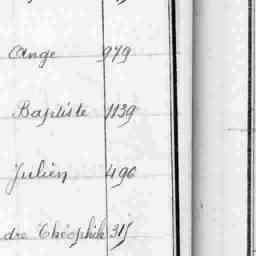 Ange 979
Baptiste 1139
Julien 496
dre Théophile 315